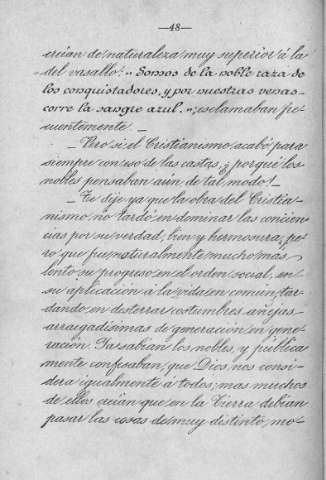 —48—
creían de naturaleza muy superior á la
del vasallo. "Somos de la noble raza de
los conquistadores, y por nuestras venas
corre la sangre azul.", esclamaban fre-
cuentemente._
_Pero si el Cristianismo acabó para
siempre con eso de las castas, ¿porqué los
nobles pensaban aún de tal modo?_
_Te dije ya que la obra del Cristia-
nismo no tardó en dominar las concien-
cias por su verdad, bien y hermosura; pe-
ro que fue naturalmente mucho mas
lento su progreso en el orden social, en
su aplicación á la vida en común, tar-
dando en desterrar costumbres añejas
arraigadísimas de generación en gene-
ración. Ya sabían los nobles, y pública-
mente confesaban, que Dios nos consi-
dera igualmente á todos; mas muchos
de ellos creían que en la Tierra debían
pasar las cosas de muy distinto mo-